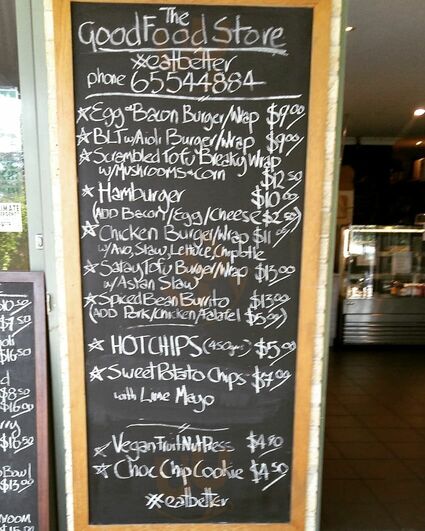 The
Good Food Store
#eatbetter
phone 65544884
Egg & Bacon Burger/Wrap $9.00
BLT w/Aioli Burger/Wrap $9.00
Scrambled Tofu Breaky Wrap
w/Mushrooms & Corn $12.50
Hamburger $10.00
(ADD Bacon/Egg/Cheese $2.50)
Chicken Burger/Wrap $11
w/Avo, Slaw, Lettuce, Chipotle
Satay Tofu Burger/Wrap $13.00
w/Asian Slaw
Spiced Bean Burrito $13.00
(ADD Pork/Chicken/Falafel $5.00)
HOTCHIPS (450gms) $5.00
Sweet Potato Chips $7.00
with Lime Mayo
Vegan Fruit Nut Press $4.90
Choc Chip Cookie $4.50
#eatbetter
$16.50
$8.50
$16.00
$16.50
Bowl
$13.50